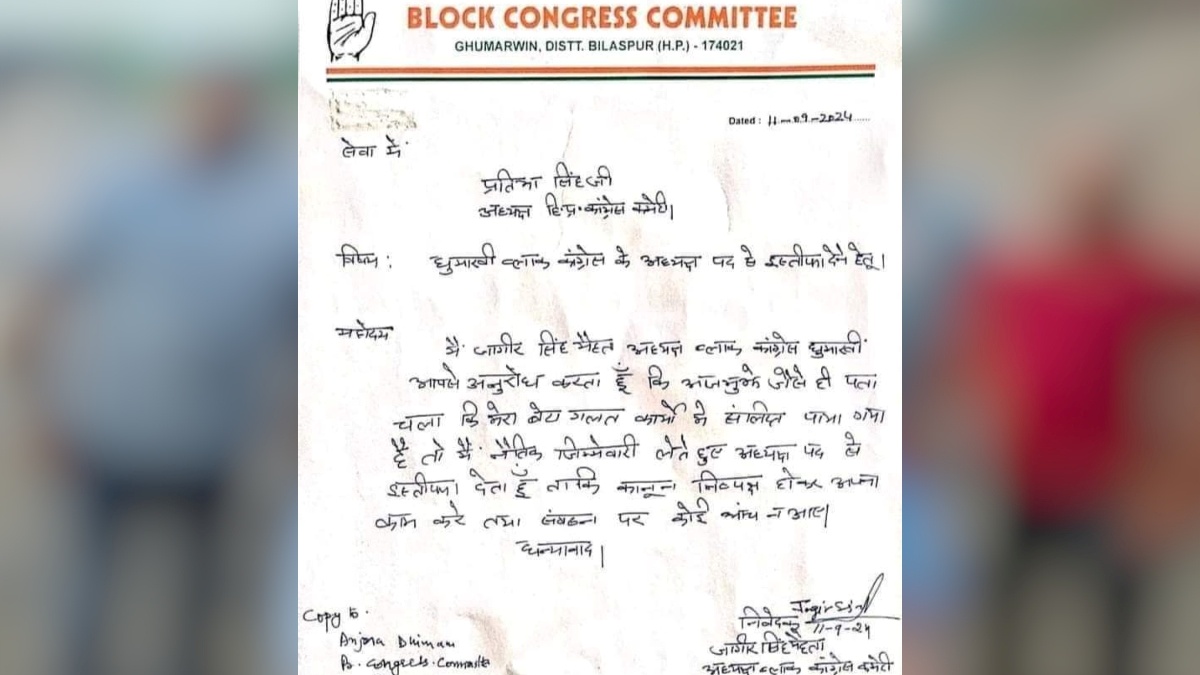 BLOCK CONGRESS COMMITTEE
GHUMARWIN, DISTT. BILASPUR (H.P.) - 174021
Dated : 11-09-2024
सेवा में
प्रतिभा सिंह जी
अध्यक्ष हि.प्र. कांग्रेस कमेटी।
विषय : घुमारवीं ब्लाक कांग्रेस के अध्यक्ष पद से इस्तीफा देने हेतू।
महोदय
मैं जागीर सिंह मैहता अध्यक्ष ब्लाक कांग्रेस घुमारवीं
आपसे अनुरोध करता हूँ कि आज मुझे जैसे ही पता
चला कि मेरा बेटा गलत कार्यो मे संलिप्त पाया गया
है तो मैं नैतिक जिम्मेवारी लेते हुए अध्यक्ष पद से
इस्तीफा देता हूँ ताकि कानून निष्पक्ष होकर अपना
काम करे तथा संगठन पर कोई आंच न आए।
धन्यावाद।
Copy to.
Anjana Dhiman
B. Congress. Committe
Jagir Singh
निवेदक 11-9-24
जागीर सिंह मैहता
अध्यक्ष ब्लाक कांग्रेस कमेटी